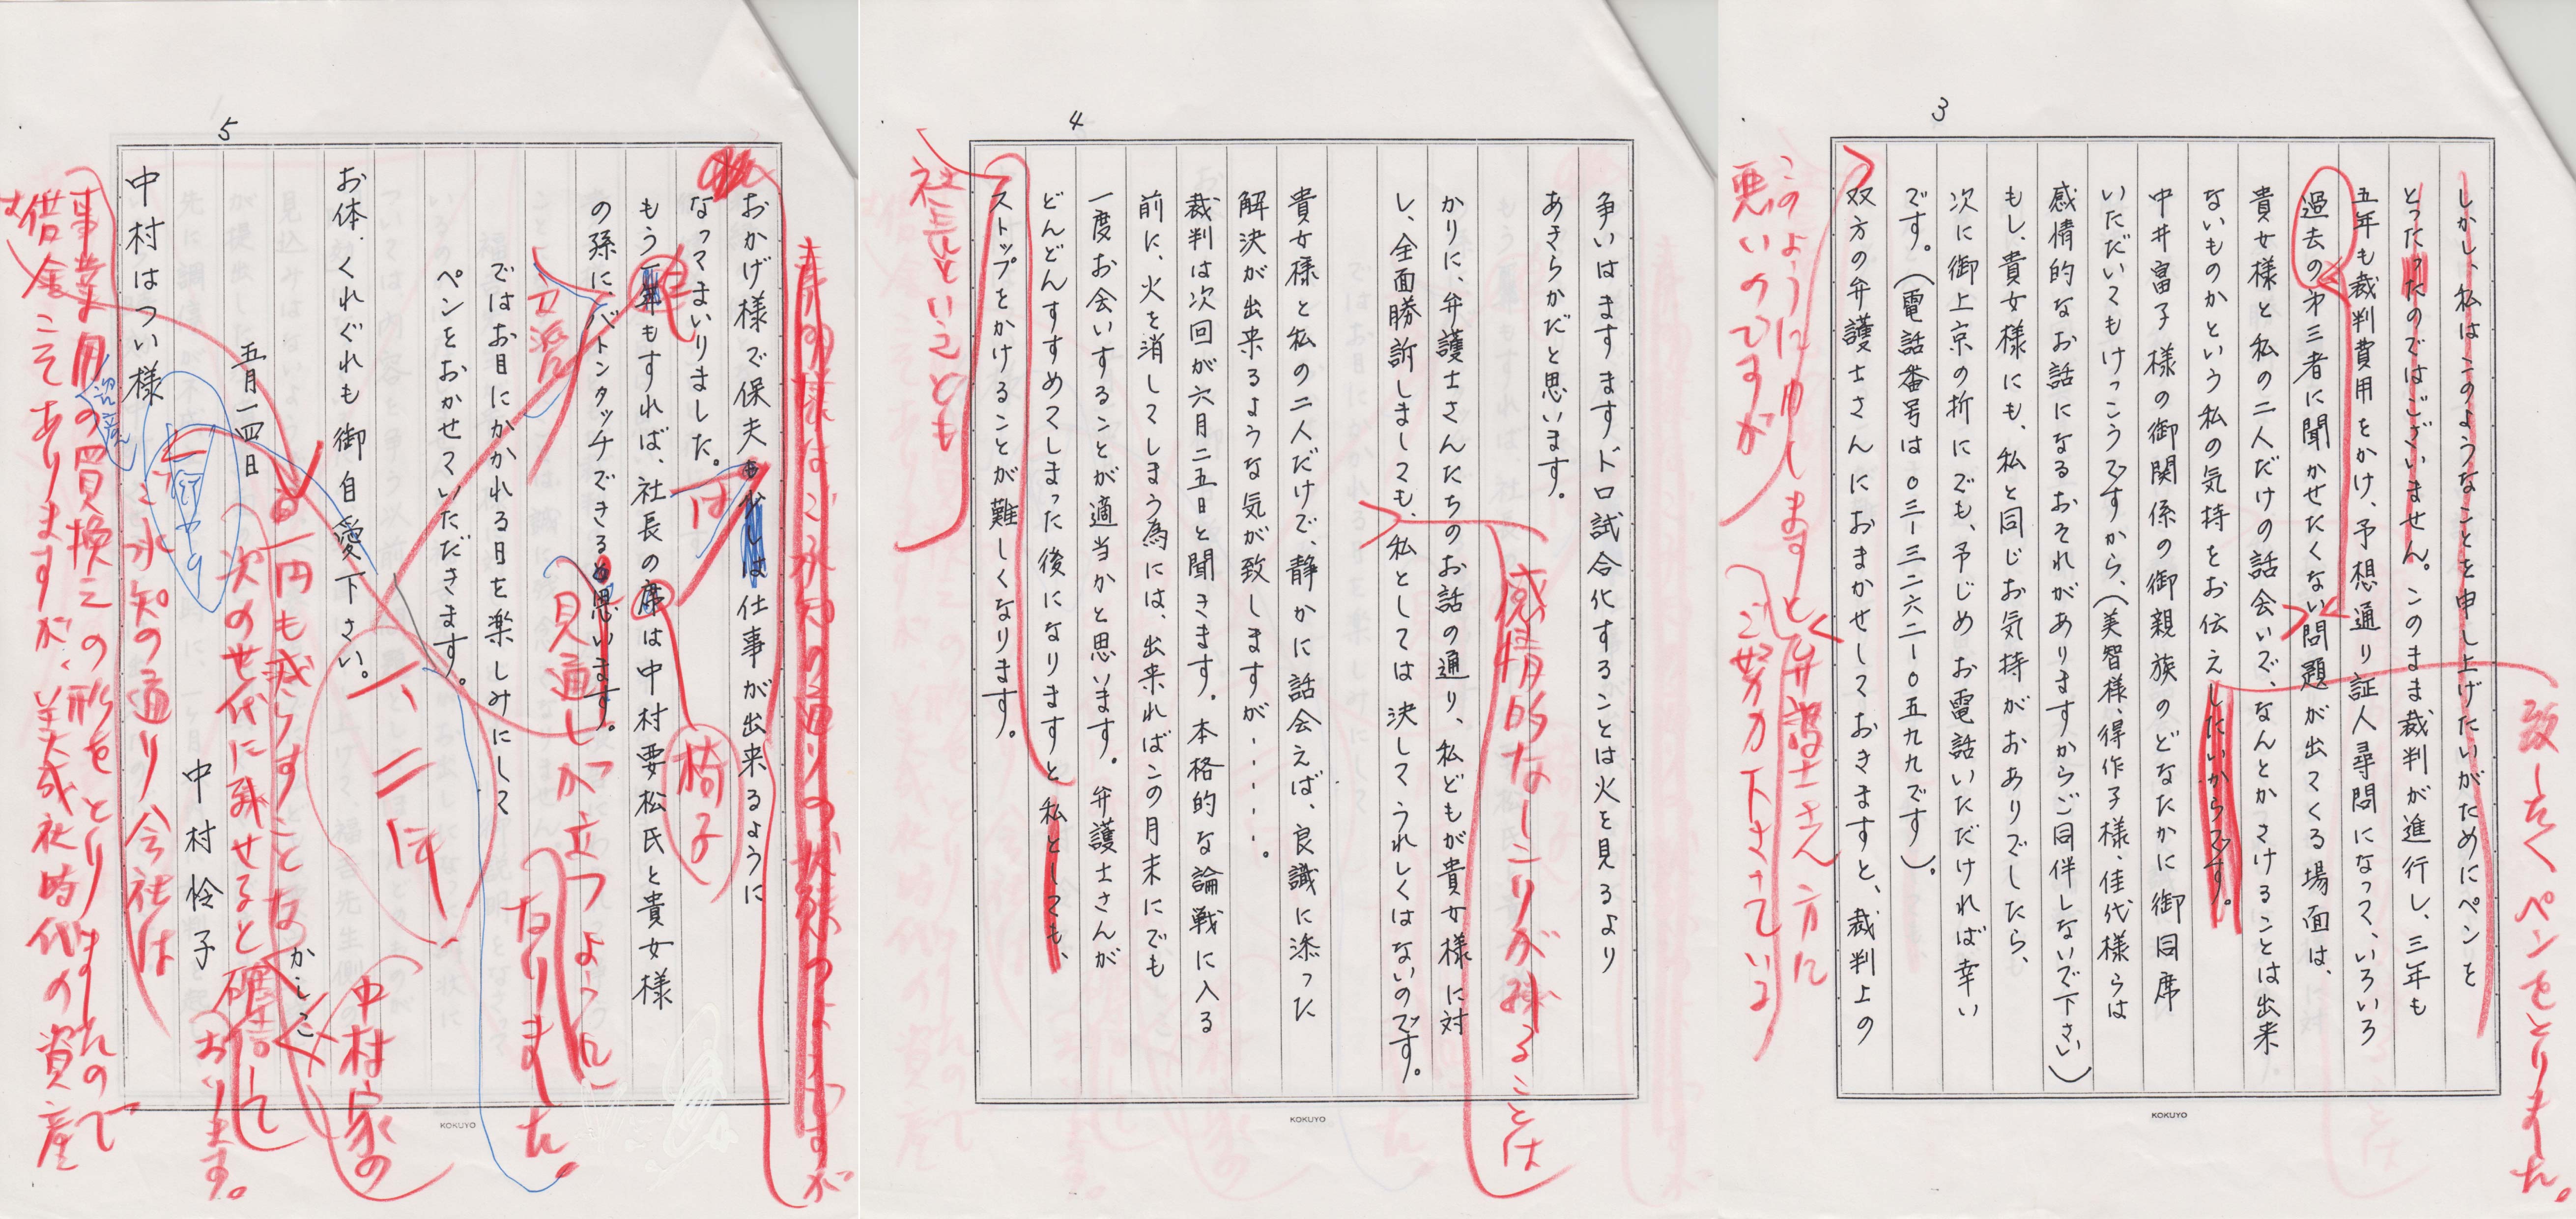 3
しかし、私はこのようなことを申し上げたいがためにペンを
とったのではございません。このまま裁判が進行し、三年も
五年も裁判費用をかけ、予想通り証人尋問になって、いろいろ
過去の第三者に聞かせたくない問題が出てくる場面は、
貴女様と私の二人だけの話会いで、なんとかさけることは出来
ないものかという私の気持をお伝えしたいからです。
中井富子様の御関係の御親族のどなたかに御同席
いただいてもけっこうですから、(美智様、得作子様、佳代様らは
感情的なお話になるおそれがありますからご同伴しないで下さい)
もし、貴女様にも、私と同じお気持がおありでしたら、
次に御上京の折にでも、予じめお電話いただければ幸い
です。(電話番号は〇三ー三二六二ー〇五九九です)。
双方の弁護士さんにおまかせしておきますと、裁判上の
改しくペンをとりました。
このように申しますと弁護士さん方に
悪いのですが
ご努力下さっている
KOKUYO
4
争いはますますドロ試合化することは火を見るより
あきらかだと思います。
かりに、弁護士さんたちのお話の通り、私どもが貴女様に対
し、全面勝訴しましても、私としては決してうれしくはないのです。
貴女様と私の二人だけで、静かに話会えば、良識に添った
解決が出来るような気が致しますが・・・・・。
裁判は次回が六月二五日と聞きます。本格的な論戦に入る
前に、火を消してしまう為には、出来ればこの月末にでも
一度お会いすることが適当かと思います。弁護士さんが
どんどんすすめてしまった後になりますと私としても、
ストップをかけることが難しくなります。
感情的なしこりが残ることは
社長といえども
KOKUYO
5
おかげ様で保夫も少しは仕事が出来るように
なってまいりました。
もう一年もすれば、社長の席は中村要松氏と貴女様
の孫に、バトンタッチできると思います。
ではお目にかかれる日を楽しみにして
ペンをおかせていただきます。
お体、くれぐれも御自愛下さい。
かしこ
五月一四日
中村怜子
中村はつい様
は
椅子
立派に
見通しが立つように
なりました。
中村家の
一円も減らすことなく
次の世代に残せると確信して
おります。
ご承知の通り会社は
事業用の買換えの形をとりましたので
借金こそありますが、美大成社時代の資産
KOKUYO